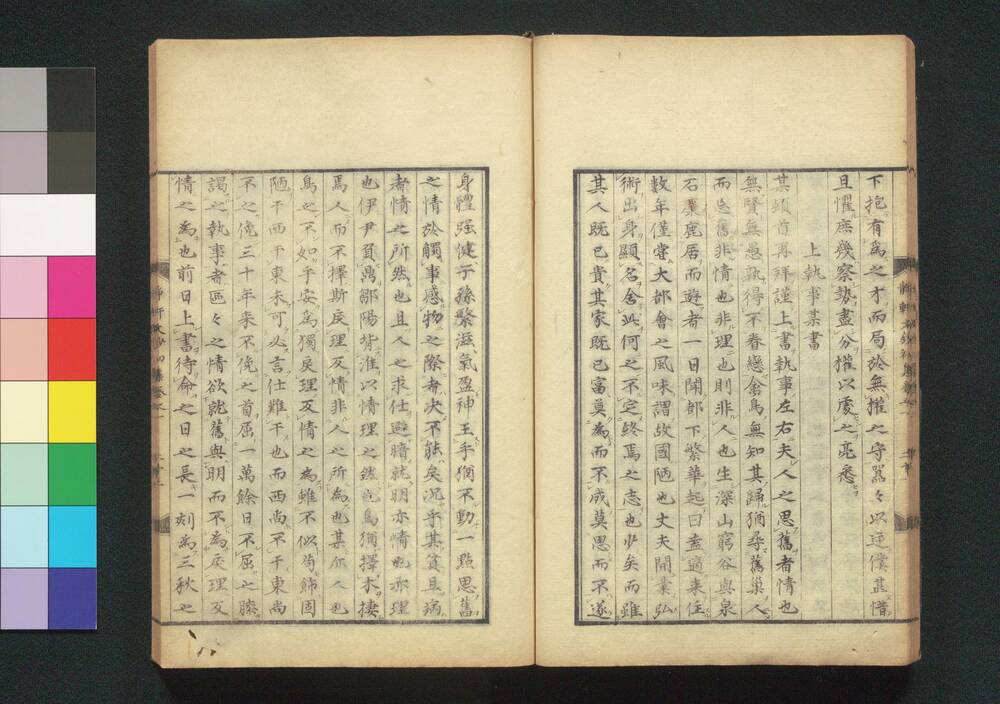 下抱有為之才而局於無權之守嚣々以逆僕甚惜
且懼庶幾察勢盡分權以處之亮悉
上執事某書
某頓首再拜謹上書執事左右夫人之思舊者情也
無賢無愚孰得不眷戀禽鳥無知其歸猶尋舊巢人
而忘舊非情也非理也則非人也生深山窮谷與泉
石麋鹿居而遊者一日聞都下繁華起曰盍適来住
數年僅嘗大都會之風味謂故國陋也丈夫開業弘
術出身顯名舍此何之不定終焉之志也少矣而雖
其人既已貴其家既已富莫為而不成莫思而不遂
身體强健子孫繁滋氣盈神王乎猶不動一點思舊
之情於觸事感物之際者決不能矣况乎其貧且病
者情之所然也且人之求仕避暗就明亦情也亦理
也伊尹負鼎鄒陽背淮以情理之然也鳥猶擇木棲
焉人而不擇斯戾理及情非人之所為也某亦人也
鳥之不如乎安為獨戾理及情之為雖不似苟飾固
陋干西干東未可必言仕難干也而西尚不干東尚
不之俛三十年来不俛之首屈一萬餘日不屈之膝
謁之執事者區々之情欲就舊與明而不為戾理反
情之為也前日上書待命之日之長一刻為三秋之